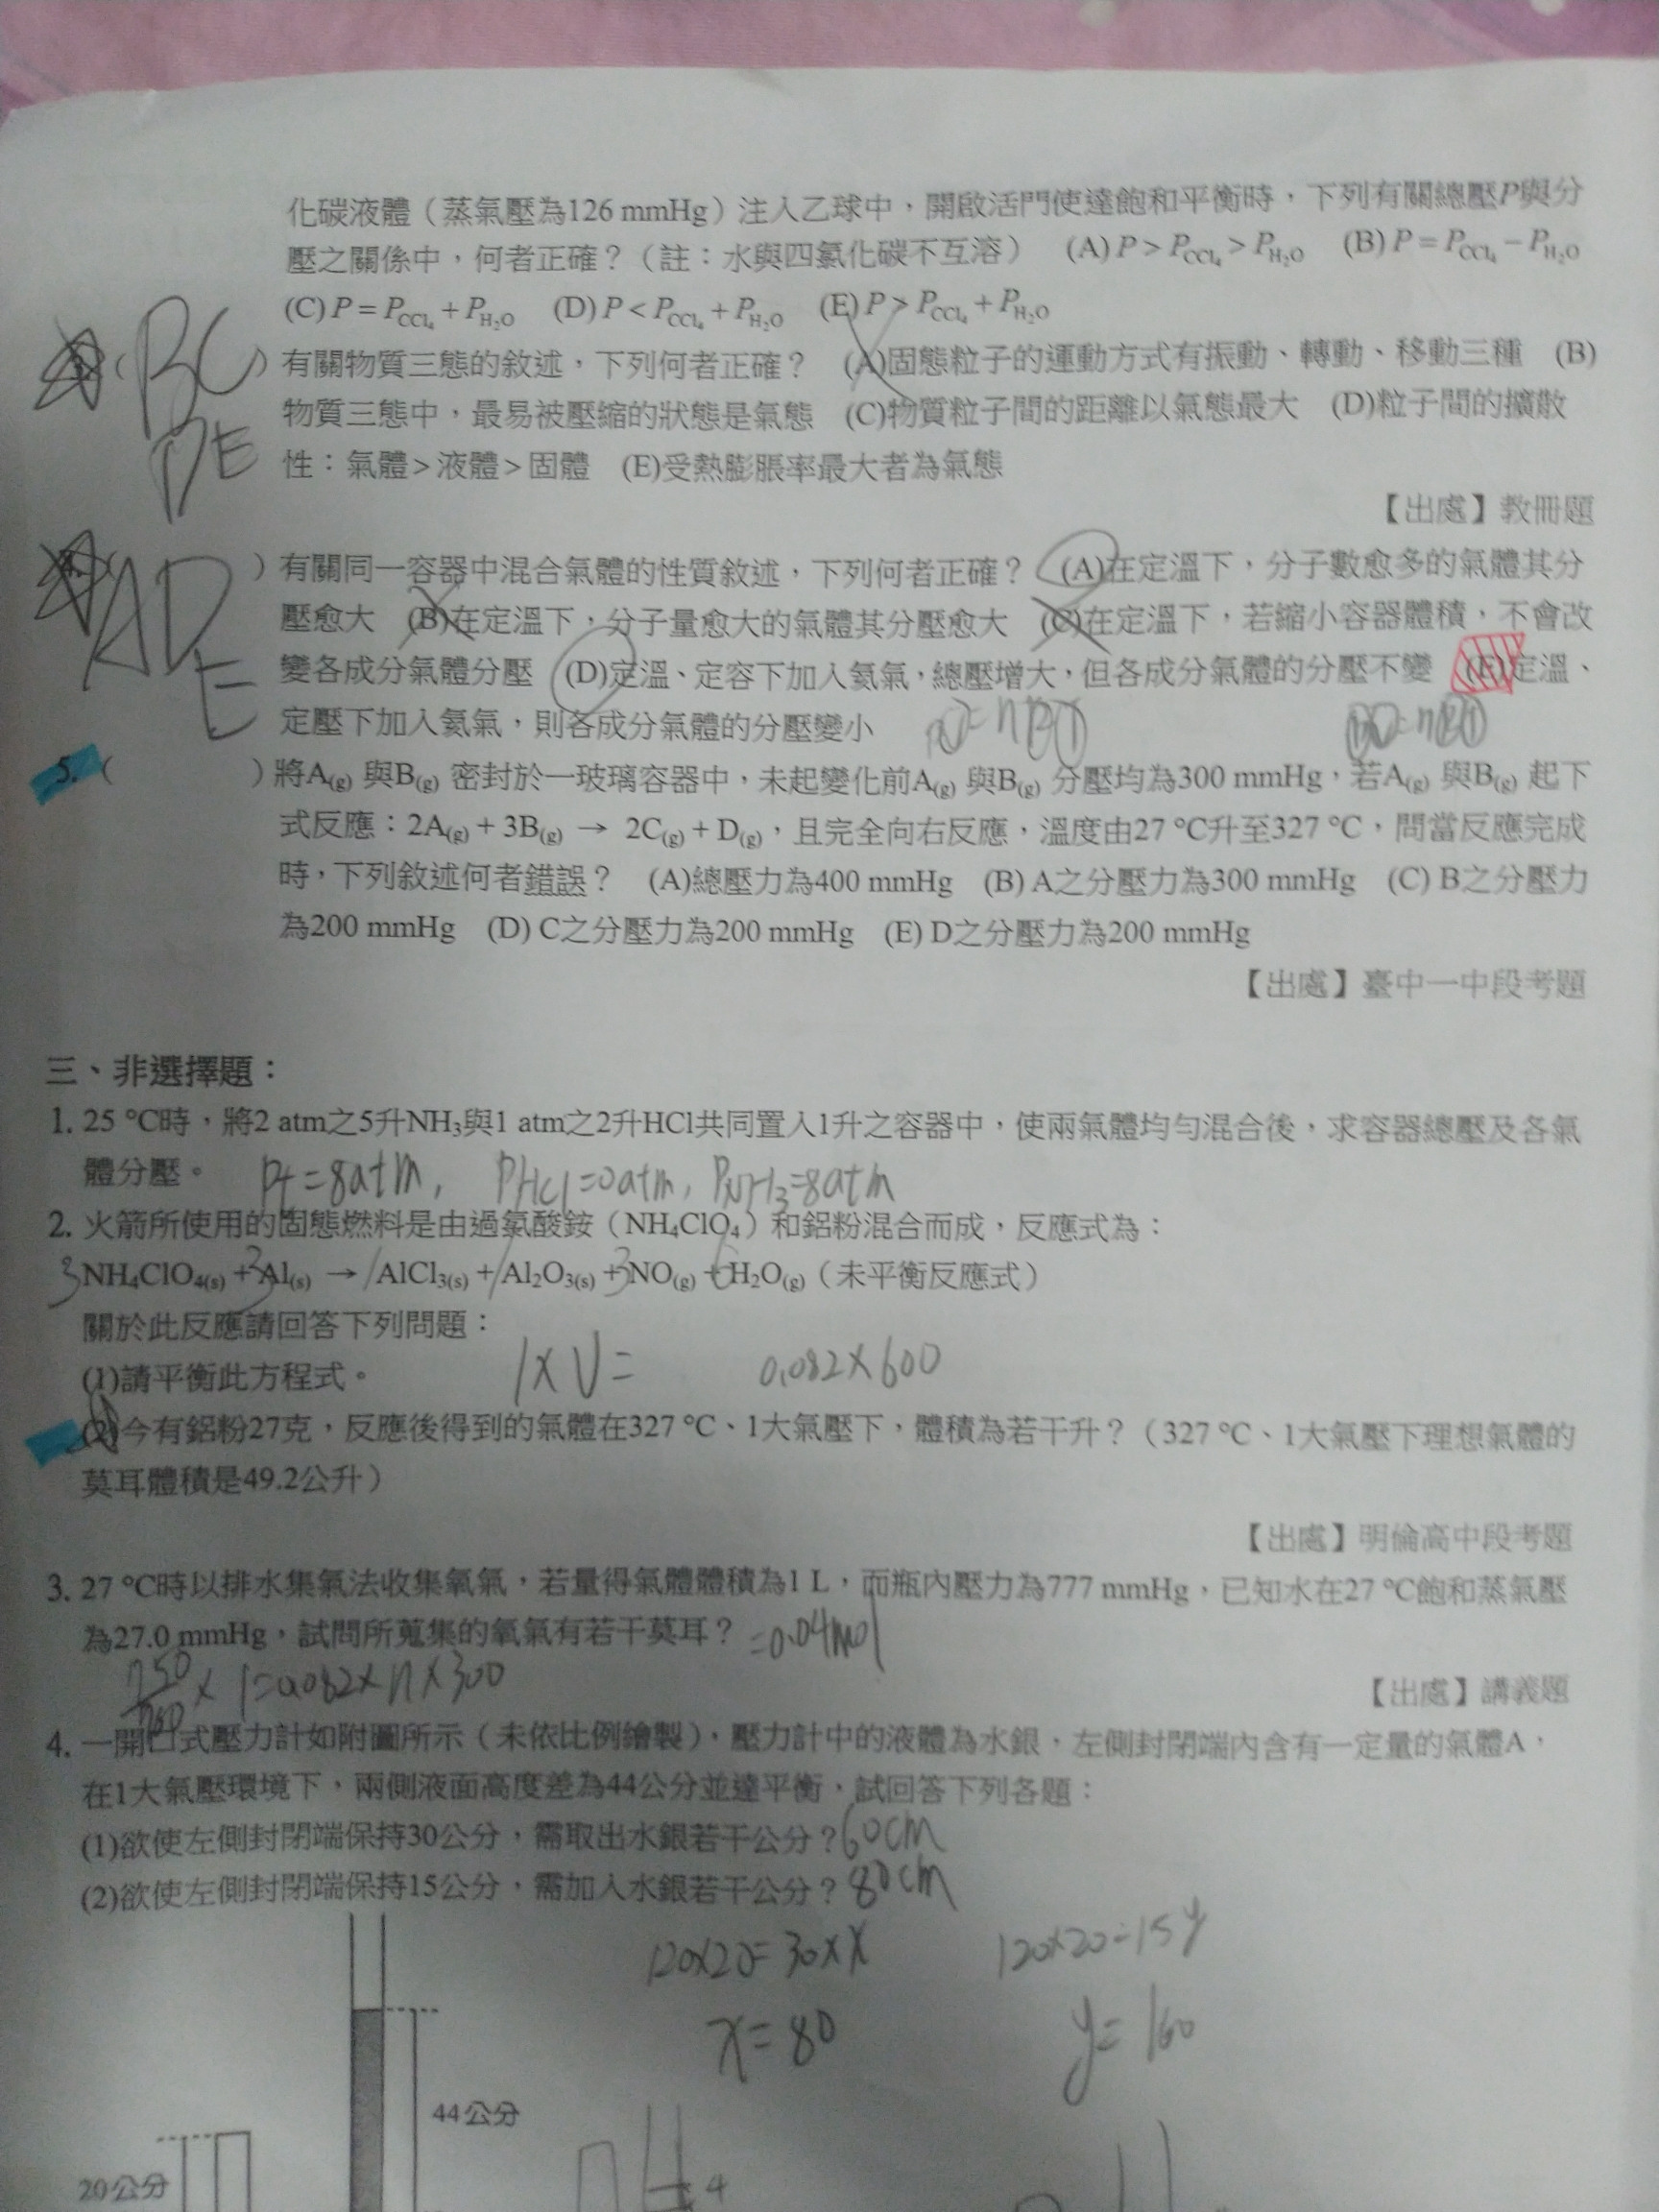 化碳液體（蒸氣壓為126 mmHg）注入乙球中，開啟活門使達飽和平衡時，下列有關總壓P與分
壓之關係中，何者正確？（註：水與四氯化碳不互溶） (A) P > PCCl₄ > PH₂O (B) P = PCCl₄ − PH₂O
(C) P = PCCl₄ + PH₂O (D) P < PCCl₄ + PH₂O (E) P > PCCl₄ + PH₂O
( BC ) 有關物質三態的敘述，下列何者正確？ (A)固態粒子的運動方式有振動、轉動、移動三種 (B)
物質三態中，最易被壓縮的狀態是氣態 (C)物質粒子間的距離以氣態最大 (D)粒子間的擴散
DE
性：氣體 > 液體 > 固體 (E)受熱膨脹率最大者為氣態
【出處】教冊題
( AD ) 有關同一容器中混合氣體的性質敘述，下列何者正確？ (A)在定溫下，分子數愈多的氣體其分
壓愈大 (B)在定溫下，分子量愈大的氣體其分壓愈大 (C)在定溫下，若縮小容器體積，不會改
變各成分氣體分壓 (D)定溫、定容下加入氦氣，總壓增大，但各成分氣體的分壓不變 (E)定溫、
E
定壓下加入氦氣，則各成分氣體的分壓變小
5. ( ) 將A(g) 與B(g) 密封於一玻璃容器中，未起變化前A(g) 與B(g) 分壓均為300 mmHg，若A(g) 與B(g) 起下
式反應：2A(g) + 3B(g) → 2C(g) + D(g)，且完全向右反應，溫度由27 °C升至327 °C，問當反應完成
時，下列敘述何者錯誤？ (A)總壓力為400 mmHg (B) A之分壓力為300 mmHg (C) B之分壓力
為200 mmHg (D) C之分壓力為200 mmHg (E) D之分壓力為200 mmHg
【出處】臺中一中段考題
三、非選擇題：
1. 25 °C時，將2 atm之5升NH₃與1 atm之2升HCl共同置入1升之容器中，使兩氣體均勻混合後，求容器總壓及各氣
體分壓。 Pt=8atm, PHCl=0atm, PNH₃=8atm
2. 火箭所使用的固態燃料是由過氯酸銨（NH₄ClO₄）和鋁粉混合而成，反應式為：
3NH₄ClO₄(s) + 3Al(s) → 1AlCl₃(s) + 1Al₂O₃(s) + 3NO(g) + 6H₂O(g)（未平衡反應式）
關於此反應請回答下列問題：
(1)請平衡此方程式。
1×V= 0.082×600
(2)今有鋁粉27克，反應後得到的氣體在327 °C、1大氣壓下，體積為若干升？（327 °C、1大氣壓下理想氣體的
莫耳體積是49.2公升）
【出處】明倫高中段考題
3. 27 °C時以排水集氣法收集氧氣，若量得氣體體積為1 L，而瓶內壓力為777 mmHg，已知水在27 °C飽和蒸氣壓
為27.0 mmHg，試問所蒐集的氧氣有若干莫耳？ =0.04mol
750/760 × 1=0.082×n×300
【出處】講義題
4. 一開口式壓力計如附圖所示（未依比例繪製），壓力計中的液體為水銀，左側封閉端內含有一定量的氣體A，
在1大氣壓環境下，兩側液面高度差為44公分並達平衡，試回答下列各題：
(1)欲使左側封閉端保持30公分，需取出水銀若干公分？60cm
(2)欲使左側封閉端保持15公分，需加入水銀若干公分？80cm
120×20=30×X 120×20=15y
x=80 y=160
44公分
20公分
4